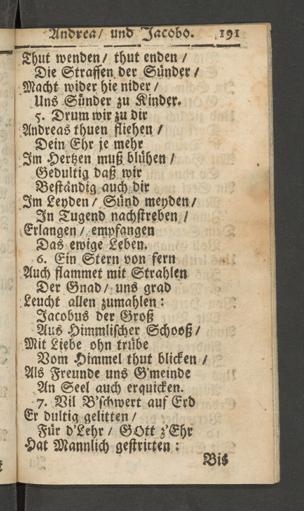 Andrea/ und Jacobo. 191
Thut wenden/ thut enden/
Die Straffen der Sünder/
Macht wider hie nider/
Uns Sünder zu Kinder.
5. Drum wir zu dir
Andreas thuen fliehen/
Dein Ehr je mehr
Im Hertzen muß blühen/
Gedultig daß wir
Beständig auch dir
Im Leyden/ Sünd meyden/
In Tugend nachstreben/
Erlangen/ empfangen
Das ewige Leben.
6. Ein Stern von fern
Auch flammet mit Strahlen
Der Gnad/ uns grad
Leucht allen zumahlen:
Jacobus der Groß
Aus Himmlischer Schooß/
Mit Liebe ohn trübe
Vom Himmel thut blicken/
Als Freunde uns G'meinde
An Seel auch erquicken.
7. Vil B'schwert auf Erd
Er dultig gelitten/
Für d'Lehr/ GOtt z'Ehr
Hat Mannlich gestritten:
Bis